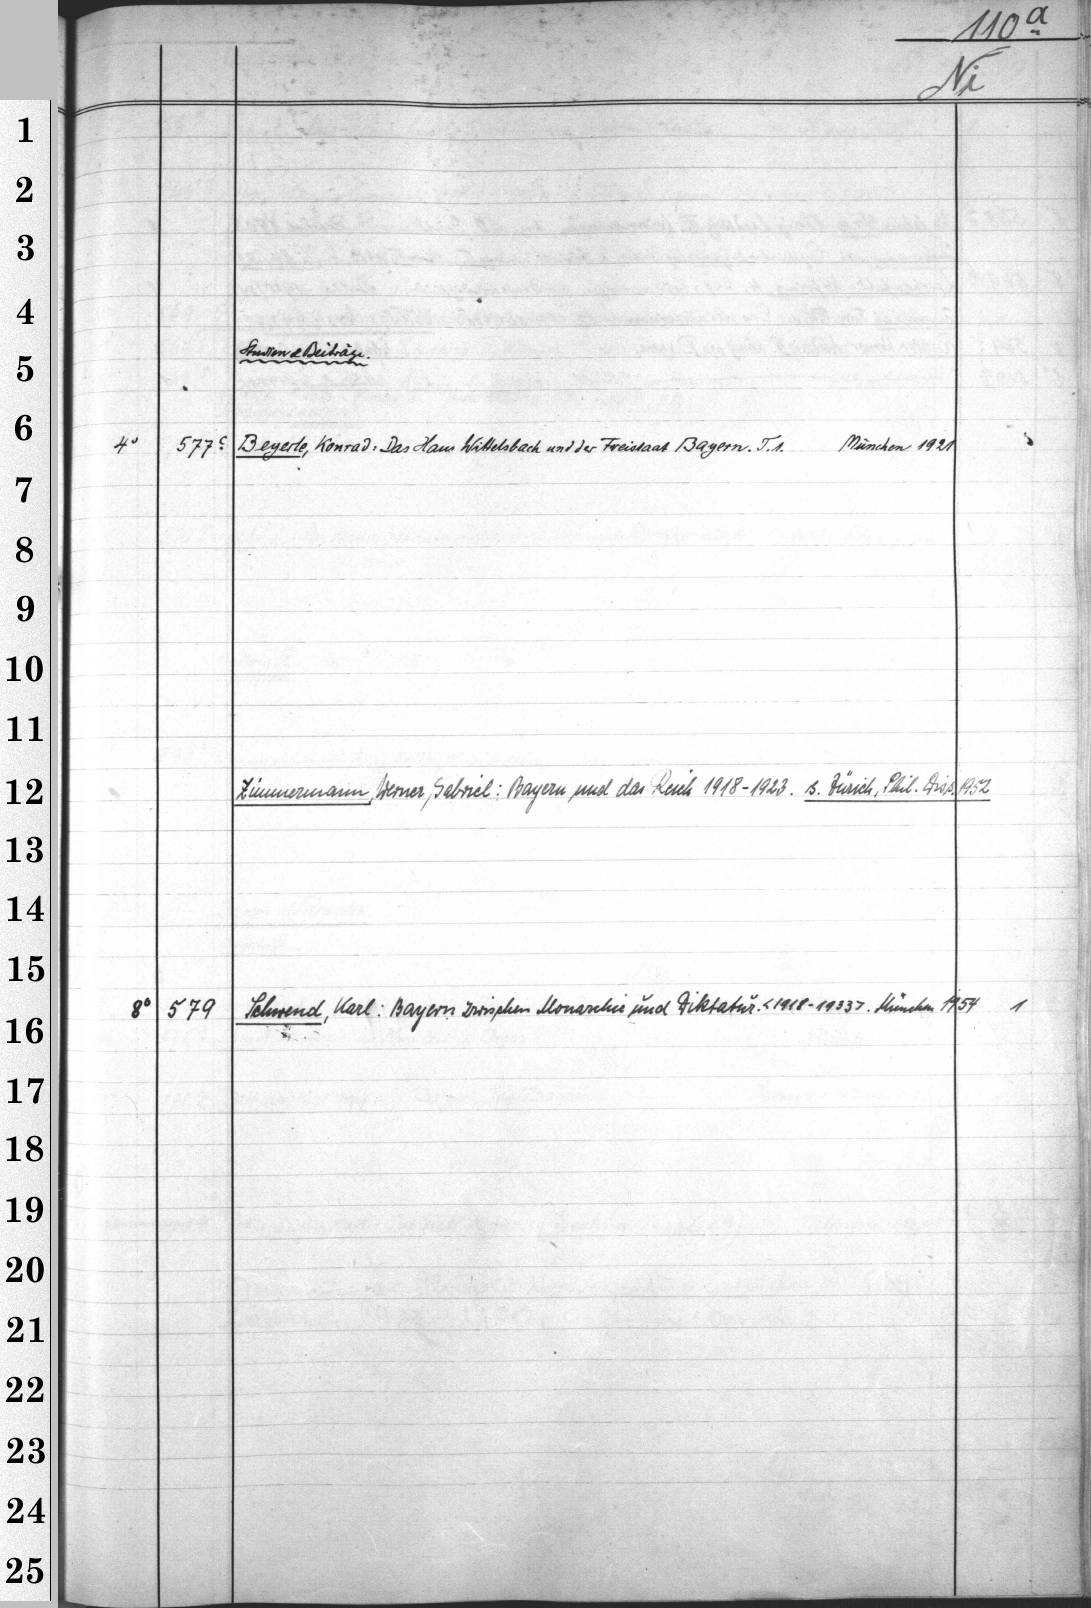 110a
Ni
1
2
3
4
Studien & Beiträge.
5
6
4° 577c Beyerle, Konrad: Das Haus Wittelsbach und der Freistaat Bayern. T. 1. München 1921
7
8
9
10
11
12 Zimmermann, Werner, Gabriel: Bayern und das Reich 1918-1923. s. Zürich, Phil. Diss. 1952
13
14
15
8° 579 Schwend, Karl: Bayern zwischen Monarchie und Diktatur. <1918-1933>. München 1954 1
16
17
18
19
20
21
22
23
24
25